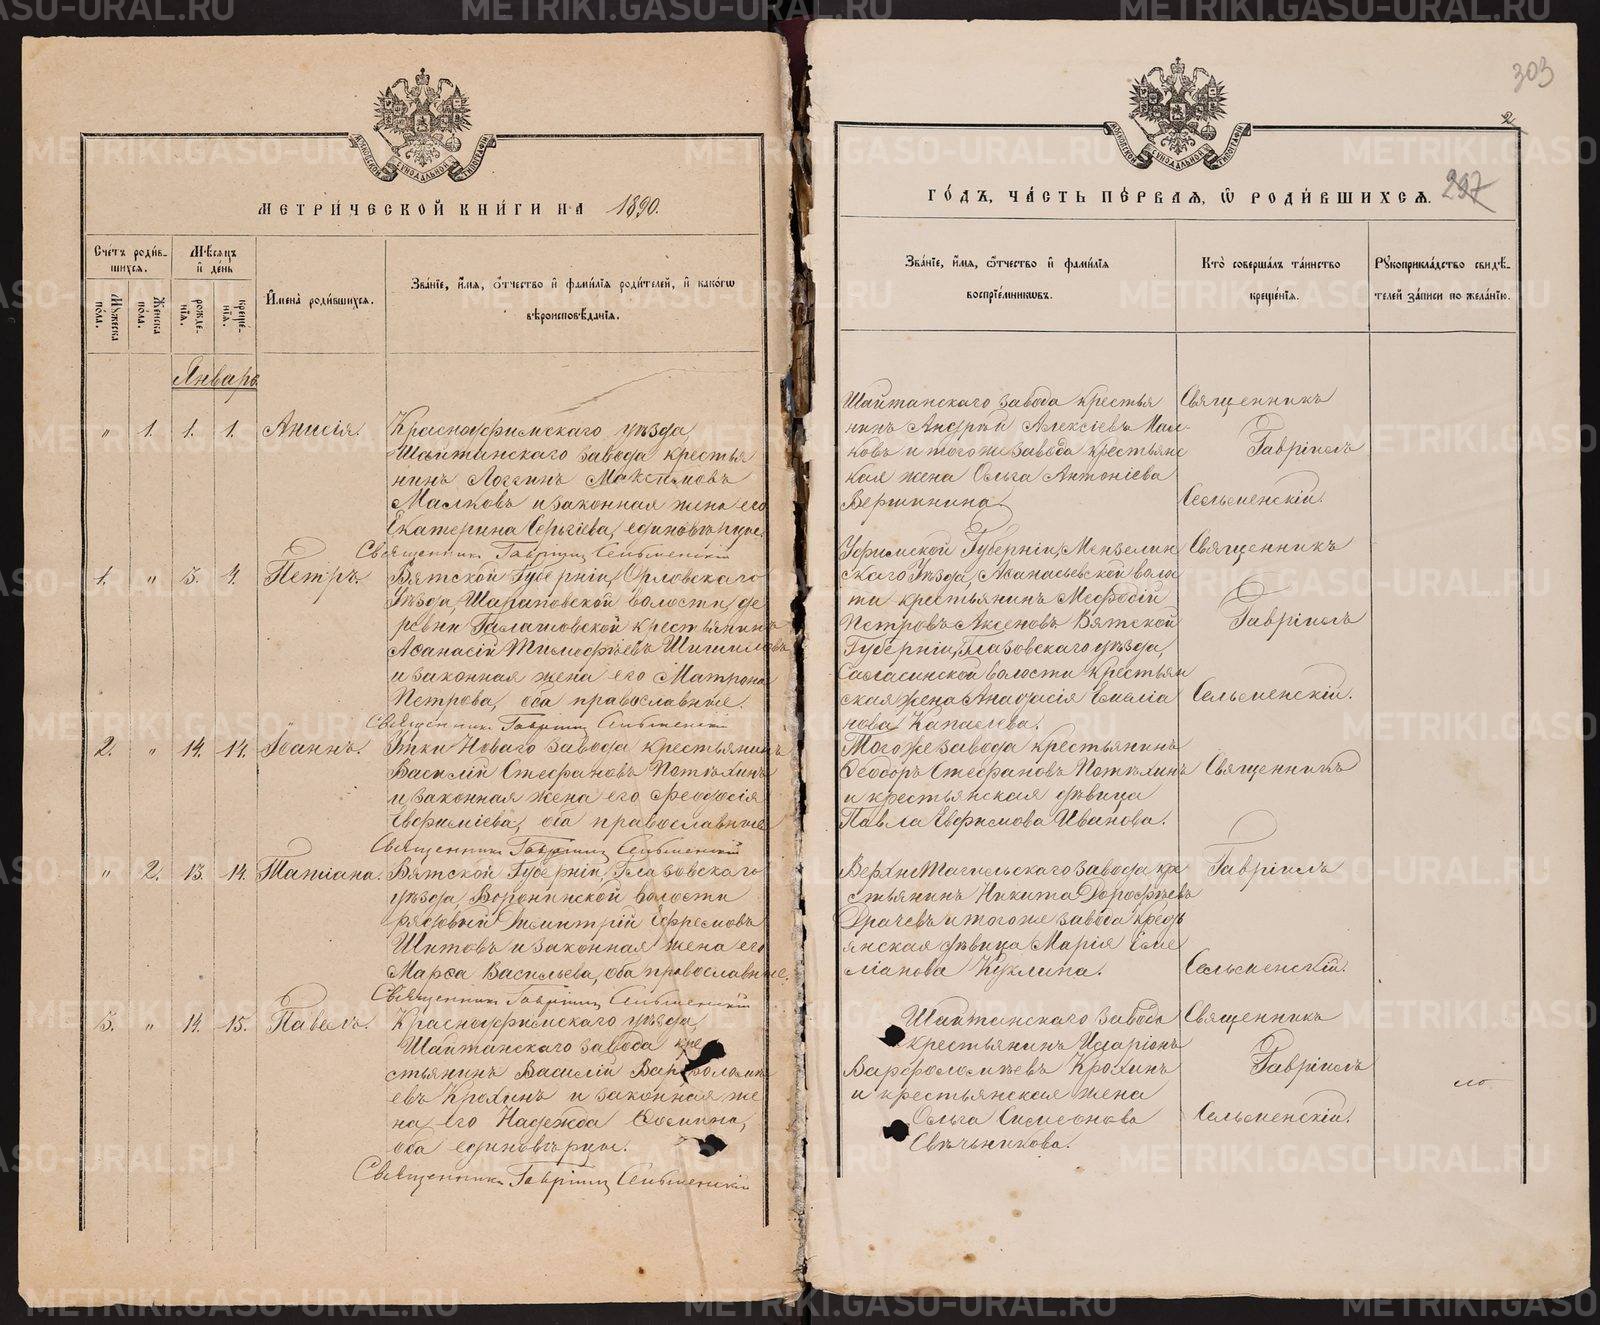 303
2
МОСКОВСКОЙ СѴНОДАЛЬНОЙ ТИПОГРАФІИ
МЕТРИ́ЧЕСКОЙ КНИ́ГИ НА 1890.
Сче́тъ роди́в-
шихся.
Мѣ́сяцъ
и҆ де́нь
И҆мена̀ роди́вшихся.
Зва́нїе, и҆́мя, ѻ҆́тчество и҆ фами́лїя роди́телей, и҆ како́гѡ
вѣроисповѣ́данїя.
Мꙋ́жеска по́ла.
Же́нска по́ла.
рожде́-нїя.
креще́-нїя.
Январь
" 1. 1. 1. Анисія.
Красноуфимскаго уѣзда,
Шайтанскаго завода крестья
нинъ Логгинъ Максимовъ
Малковъ и законная жена его
Екатерина Сергѣева, единовѣрцы.
Священникъ Гавріилъ Сельменскій
1. " 3. 4. Петръ.
Вятской Губерніи, Орловскаго
уѣзда, Шараповской волости, де
ревни Галашовской крестьянинъ
Аѳанасій Тимоѳѣевъ Шишиловъ
и законная жена его Матрона
Петрова, оба православные.
Священникъ Гавріилъ Сельменскій
2. " 14. 14. Іоаннъ.
Утки Новаго завода крестьянинъ
Василій Стефановъ Потѣхинъ
и законная жена его Феодосія
Евфиміева, оба православные
Священникъ Гавріилъ Сельменскій
" 2. 13. 14. Татіана.
Вятской Губерніи, Глазовскаго
уѣзда, Воронинской волости
рядовый Димитрій Ефремовъ
Шитовъ и законная жена его
Марѳа Васильева, оба православные.
Священникъ Гавріилъ Сельменскій
3. " 14. 15. Павелъ.
Красноуфимскаго уѣзда,
Шайтанскаго завода кре
стьянинъ Василій Варѳоломѣ
евъ Крохинъ и законная же
на его Надежда Ѳомина,
оба единовѣрцы.
Священникъ Гавріилъ Сельменскій
МОСКОВСКОЙ СѴНОДАЛЬНОЙ ТИПОГРАФІИ
ГО́ДЪ, ЧА́СТЬ ПЕ́РВАЯ, Ѽ РОДИ́ВШИХСЯ. 297
Зва́нїе, и҆́мя, ѻ҆́тчество и҆ фами́лїя
воспрїе́мникѡвъ.
Кто̀ соверша́лъ та́инство
креще́нїя.
Рꙋкоприкла́дство свидѣ́-
телей за́писи по жела́нїю.
Шайтанскаго завода крестья
нинъ Андрей Алексіевъ Мал-
ковъ и того же завода крестьянс
кая жена Ольга Антоніева
Вершинина.
Священникъ
Гавріилъ
Сельменскій.
Уфимской Губерніи, Мензелин
скаго Уѣзда, Аѳанасьевской воло
сти крестьянинъ Меѳодій
Петровъ Аксеновъ Вятской
Губерніи, Глазовскаго уѣзда,
волости крестьян
ская жена Анастасія Емелiа
нова
Священникъ
Гавріилъ
Сельменскій.
Того же завода крестьянинъ
Ѳеодоръ Стефановъ Потѣхинъ
и крестьянская дѣвица
Павла Евфимова Иванова.
Священникъ
Верхне Тагильскаго завода кре
стьянинъ Никита Дороѳѣевъ
Драчевъ и того же завода кресть
янская дѣвица Марія Еме
ліанова Куклина.
Гавріилъ
Сельменскій.
Шайтанскаго завода
крестьянинъ Иларіонъ
Варѳоломѣевъ Крохинъ
и крестьянская жена
Ольга Симеонова
Свѣчникова.
Священникъ
Гавріилъ
Сельменскій.
METRIKI.GASO-URAL.RU